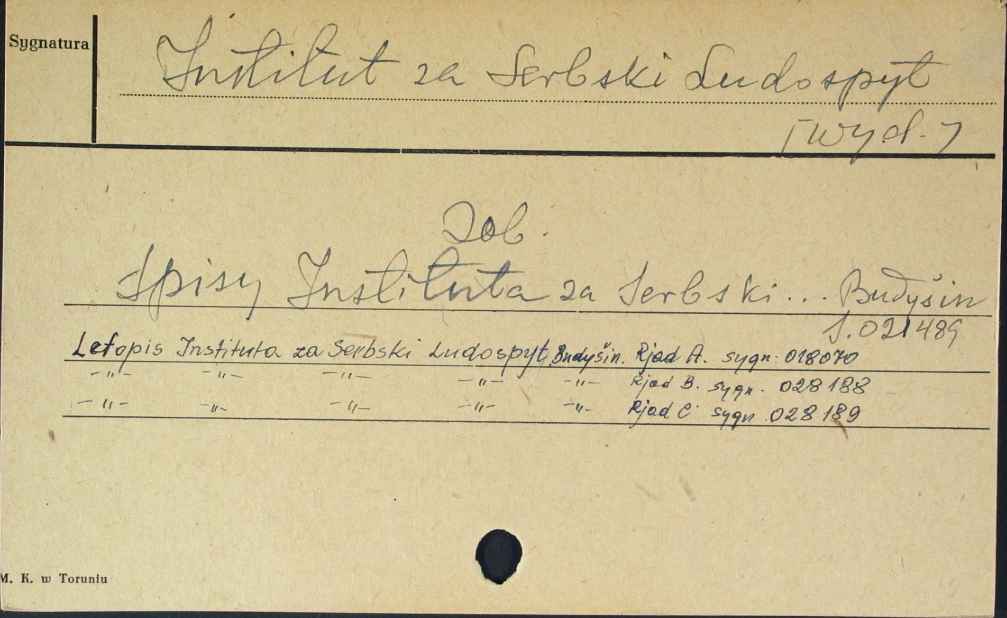 Sygnatura
Institut za Serbski Ludospyt
[wyd.]
Zob.
Spisy Instituta za Serbski... Budyšin
S. 021489
Letopis Instituta za Serbski Ludospyt, Budyšin. Rjad A. sygn. 018070
-"- -"- -"- -"- -"- Rjad B. sygn. 028188
-"- -"- -"- -"- -"- Rjad C sygn. 028189
M. K. w Toruniu